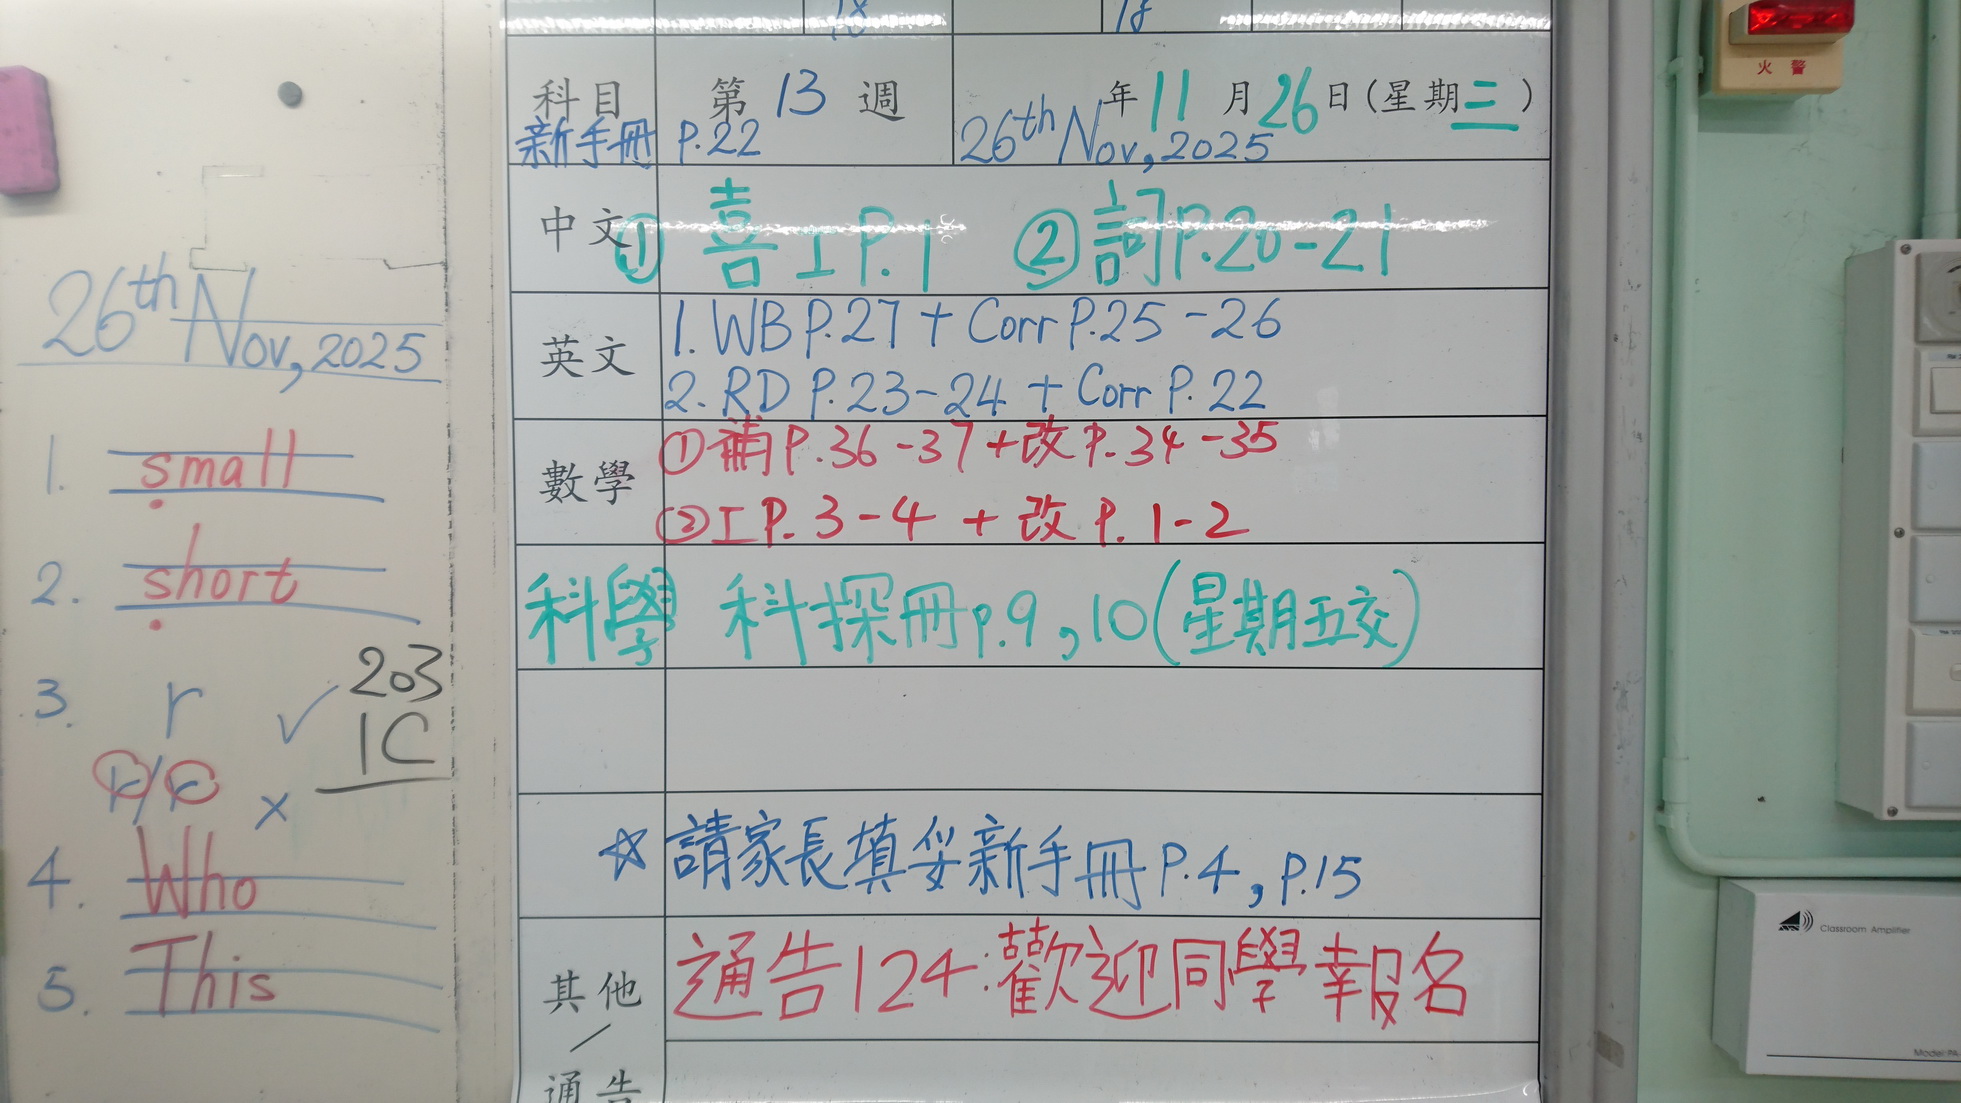 18 18
科目 第 13 週 年 11 月 26 日(星期三)
新手冊 P.22 26th Nov, 2025
中文 ① 喜工P.1 ② 詞P.20-21
英文
1. WB P.27 + Corr P.25-26
2. RD P.23-24 + Corr P.22
數學
①補P.36-37+改P.34-35
②工P.3-4 + 改P.1-2
科學 科探冊p.9,10(星期五交)
☆請家長填妥新手冊P.4,p.15
其他/通告
通告124:歡迎同學報名
26th Nov, 2025
1. small
2. short
3. r ✓
r/r ×
4. Who
5. This
203
1C
火警
Classroom Amplifier
Model:PA